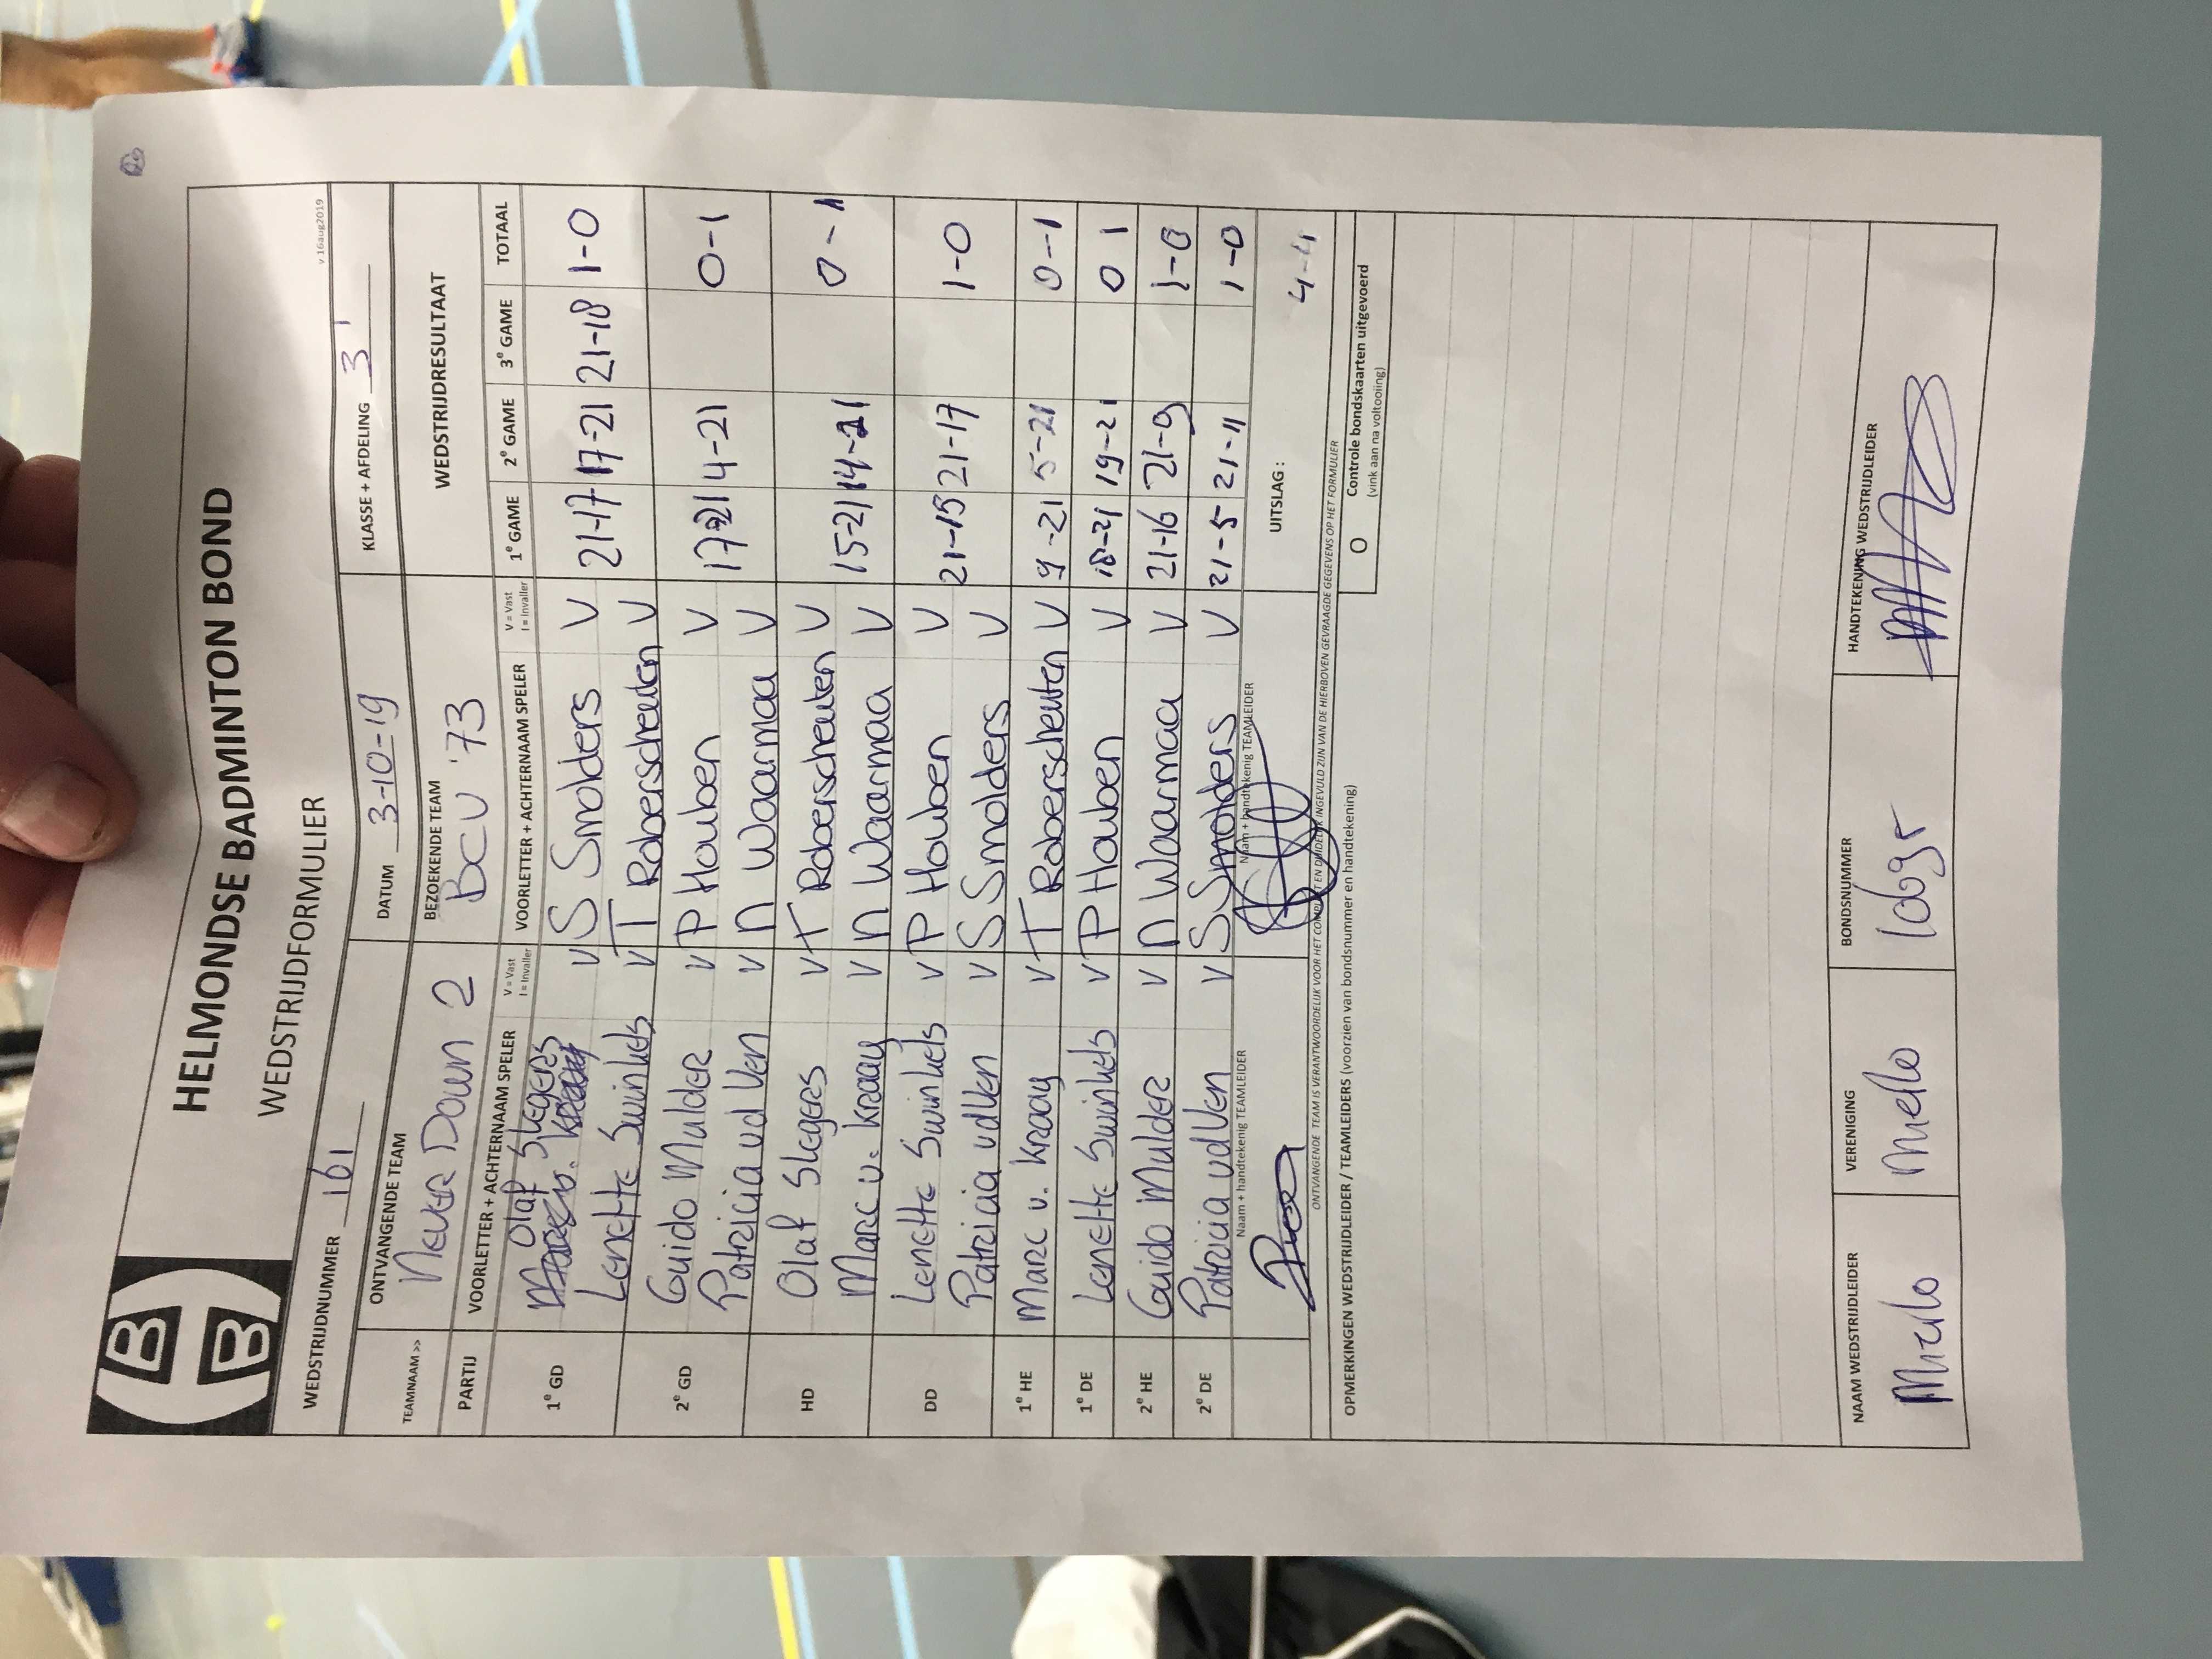 HELMONDSE BADMINTON BOND
WEDSTRIJDFORMULIER
v 16aug2019
WEDSTRIJDNUMMER 161 DATUM 3-10-19 KLASSE + AFDELING 3
TEAMNAAM >> ONTVANGENDE TEAM BEZOEKENDE TEAM WEDSTRIJDRESULTAAT
Never Down 2 BCV '73
PARTIJ VOORLETTER + ACHTERNAAM SPELER V = Vast I = Invaller VOORLETTER + ACHTERNAAM SPELER V = Vast I = Invaller 1e GAME 2e GAME 3e GAME TOTAAL
1e GD Olaf Slegers V S Smolders V 21-17 17-21 21-18 1-0
Lenette Swinkels V T Roberscheuten V
2e GD Guido Mulder V P Houben V 17-21 14-21 0-1
Patricia vd Ven V N Waarmaa V
HD Olaf Slegers V T Roberscheuten V 15-21 14-21 0-1
Marc v. Kraay V N Waarmaa V
DD Lenette Swinkels V P Houben V 21-15 21-17 1-0
Patricia vd Ven V S Smolders V
1e HE Marc v. Kraay V T Roberscheuten V 9-21 5-21 0-1
1e DE Lenette Swinkels V P Houben V 18-21 19-21 0 1
2e HE Guido Mulder V N Waarmaa V 21-16 21-9 1-0
2e DE Patricia vd Ven V S Smolders V 21-5 21-11 1-0
Naam + handtekenig TEAMLEIDER Naam + handtekenig TEAMLEIDER UITSLAG : 4-4
ONTVANGENDE TEAM IS VERANTWOORDELIJK VOOR HET COMPLEET EN DUIDELIJK INGEVULD ZIJN VAN DE HIERBOVEN GEVRAAGDE GEGEVENS OP HET FORMULIER
OPMERKINGEN WEDSTRIJDLEIDER / TEAMLEIDERS (voorzien van bondsnummer en handtekening) O Controle bondskaarten uitgevoerd
(vink aan na voltooiing)
NAAM WEDSTRIJDLEIDER VERENIGING BONDSNUMMER HANDTEKENING WEDSTRIJDLEIDER